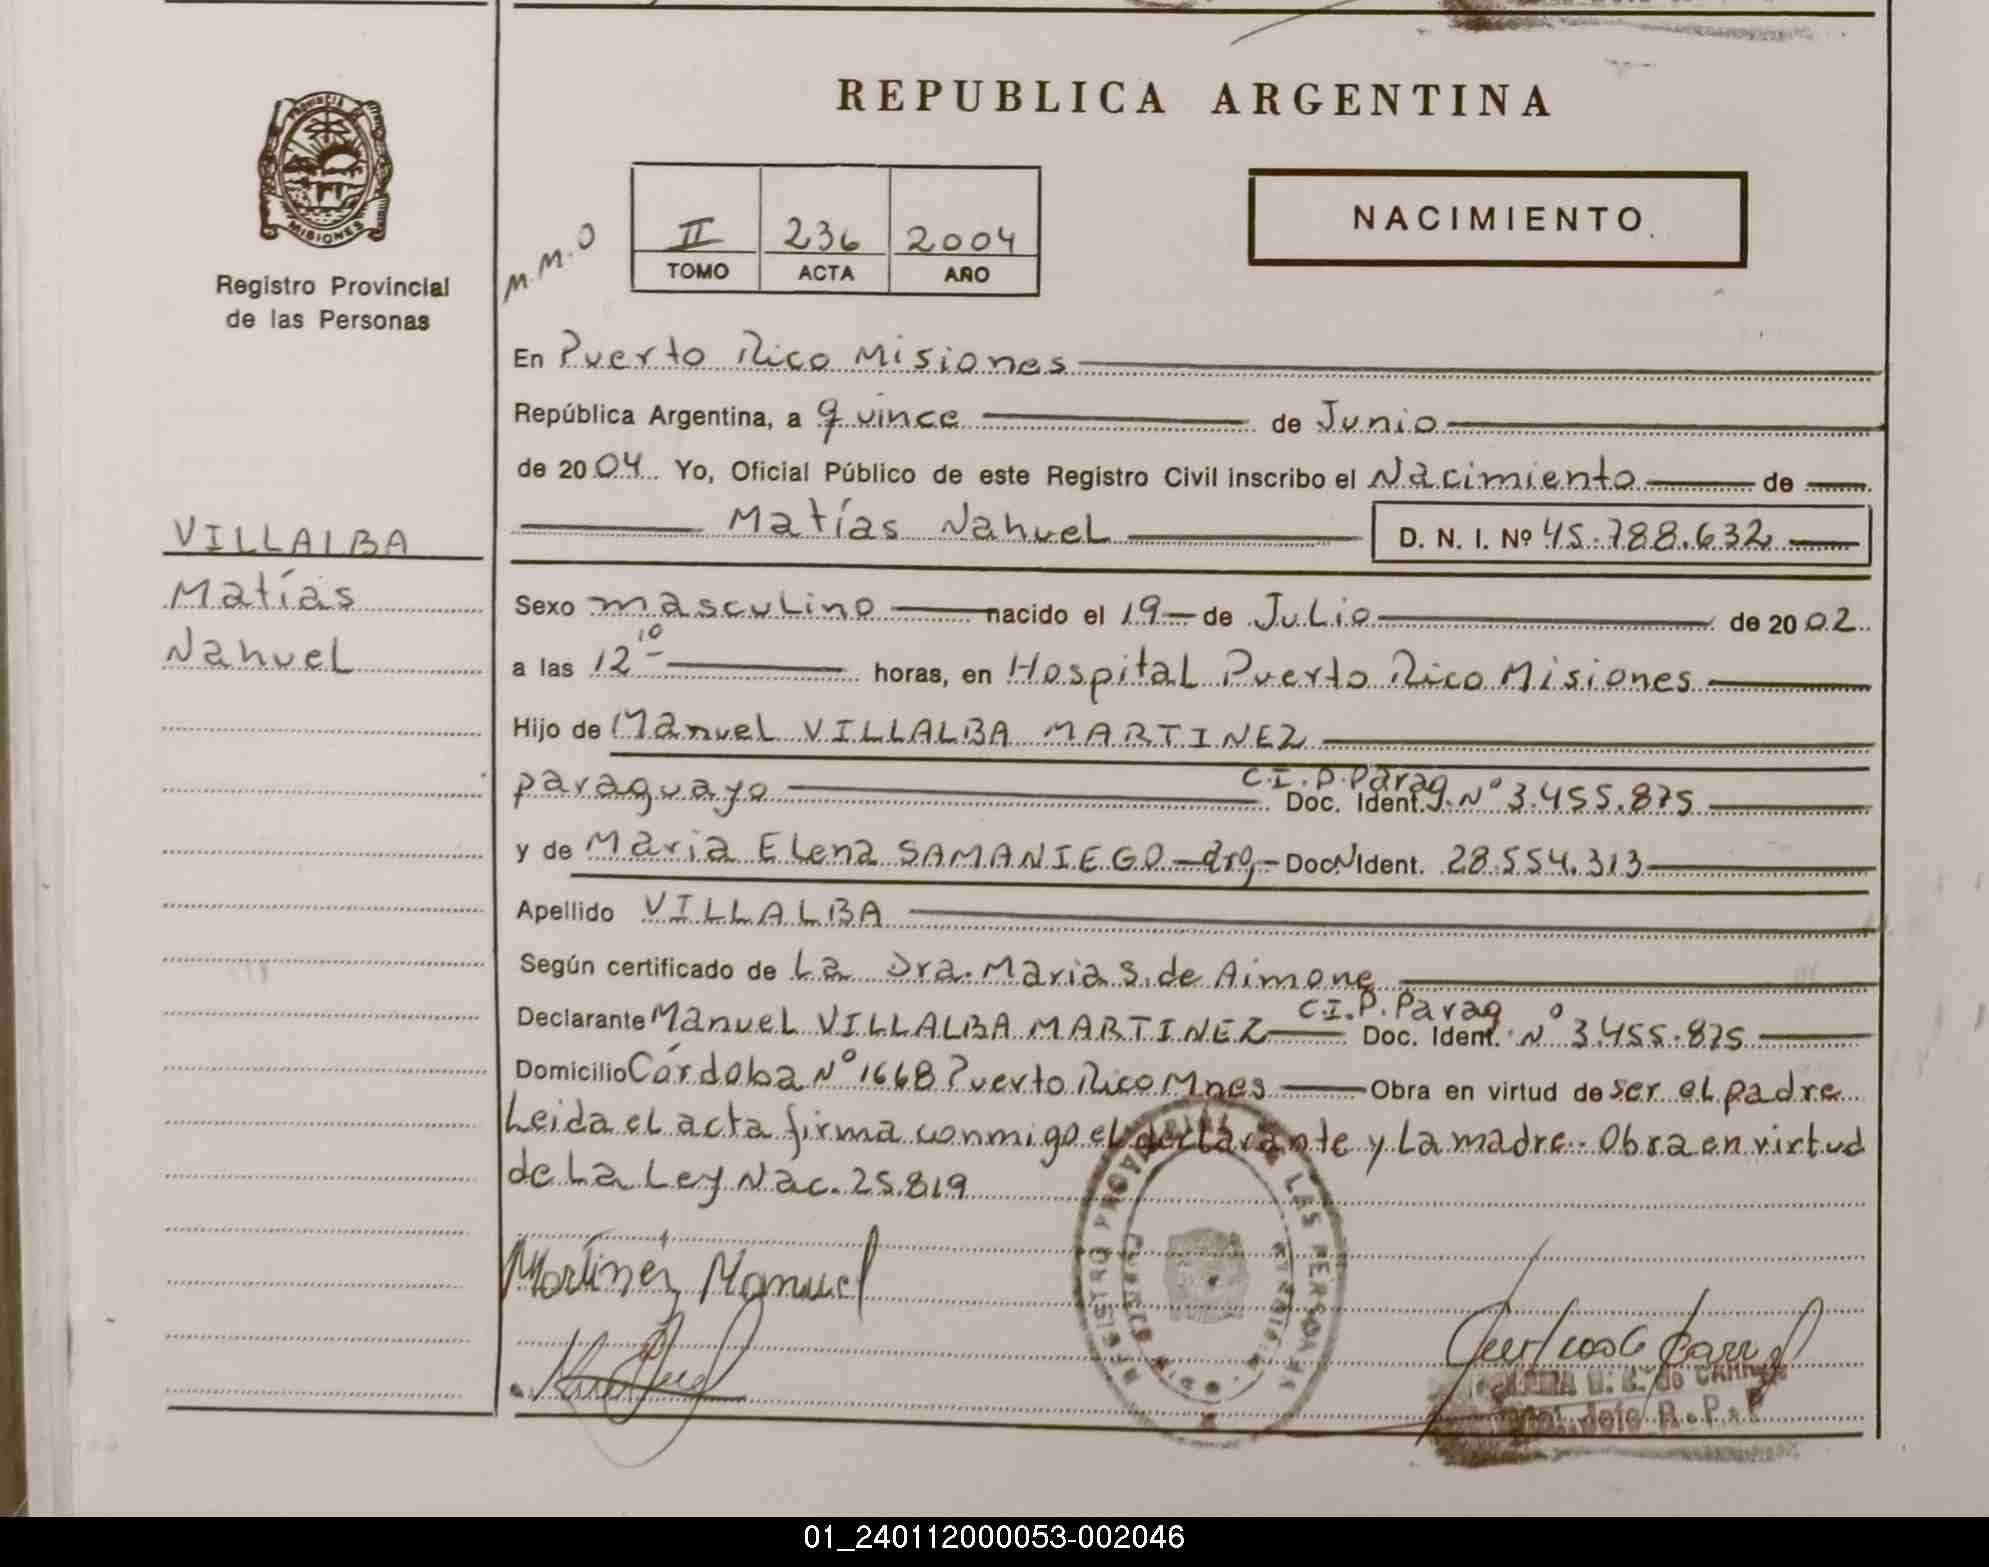 PROVINCIA
MISIONES
Registro Provincial
de las Personas
VILLALBA
Matías
Nahuel
REPUBLICA ARGENTINA
M.M.O
II 236 2004
TOMO ACTA AÑO
NACIMIENTO.
En Puerto Rico Misiones
República Argentina, a quince de Junio
de 2004 Yo, Oficial Público de este Registro Civil inscribo el Nacimiento de
Matías Nahuel D. N. I. Nº 45.788.632
Sexo masculino nacido el 19 de Julio de 2002
a las 12 10 horas, en Hospital Puerto Rico Misiones
Hijo de Manuel VILLALBA MARTINEZ
paraguayo C.I.P.Parag. Doc. Ident. Nº 3.455.875
y de Maria Elena SAMANIEGO arg. Doc.N Ident. 28.554.313
Apellido VILLALBA
Según certificado de La Dra. Maria S. de Aimone
Declarante Manuel VILLALBA MARTINEZ C.I.P.Parag Doc. Ident. Nº 3.455.875
Domicilio Córdoba Nº 1668 Puerto Rico Mnes Obra en virtud de ser el padre
Leida el acta firma conmigo el declarante y La madre.- Obra en virtud
de La Ley Nac. 25.819
Martinez Manuel
REGISTRO PROVINCIAL DE LAS PERSONAS
MISIONES
de
Jefe R.P.P
01_240112000053-002046